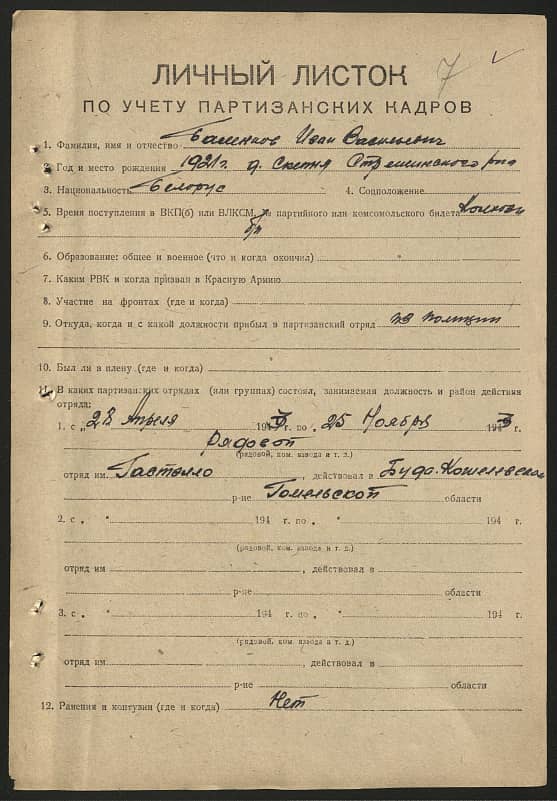 7
ЛИЧНЫЙ ЛИСТОК
ПО УЧЕТУ ПАРТИЗАНСКИХ КАДРОВ
1. Фамилия, имя и отчество Иван Васильевич
2. Год и место рождения 1921г. д. Скепня Стрешинского р-на
3. Национальность Белорус 4. Соцположение
5. Время поступления в ВКП(б) или ВЛКСМ, № партийного или комсомольского билета
б/п
6. Образование: общее и военное (что и когда окончил)
7. Каким РВК и когда призван в Красную Армию
8. Участие на фронтах (где и когда)
9. Откуда, когда и с какой должности прибыл в партизанский отряд из полиции
10. Был ли в плену (где и когда)
11. В каких партизанских отрядах (или группах) состоял, занимаемая должность и район действия
отряда:
1. с „28 Апреля 1943 г. по „25 Ноября 1943 г.
Рядовой
(рядовой, ком. взвода и т. д.)
отряд им. Гастелло, действовал в Буда-Кошелевском
р-не Гомельской области
2. с „ " 194 г. по „ " 194 г.
(рядовой, ком. взвода и т. д.)
отряд им , действовал в
р-не области
3. с „ " 194 г. по „ " 194 г.
(рядовой, ком. взвода и т. д.)
отряд им , действовал в
р-не области
12. Ранения и контузии (где и когда) Нет